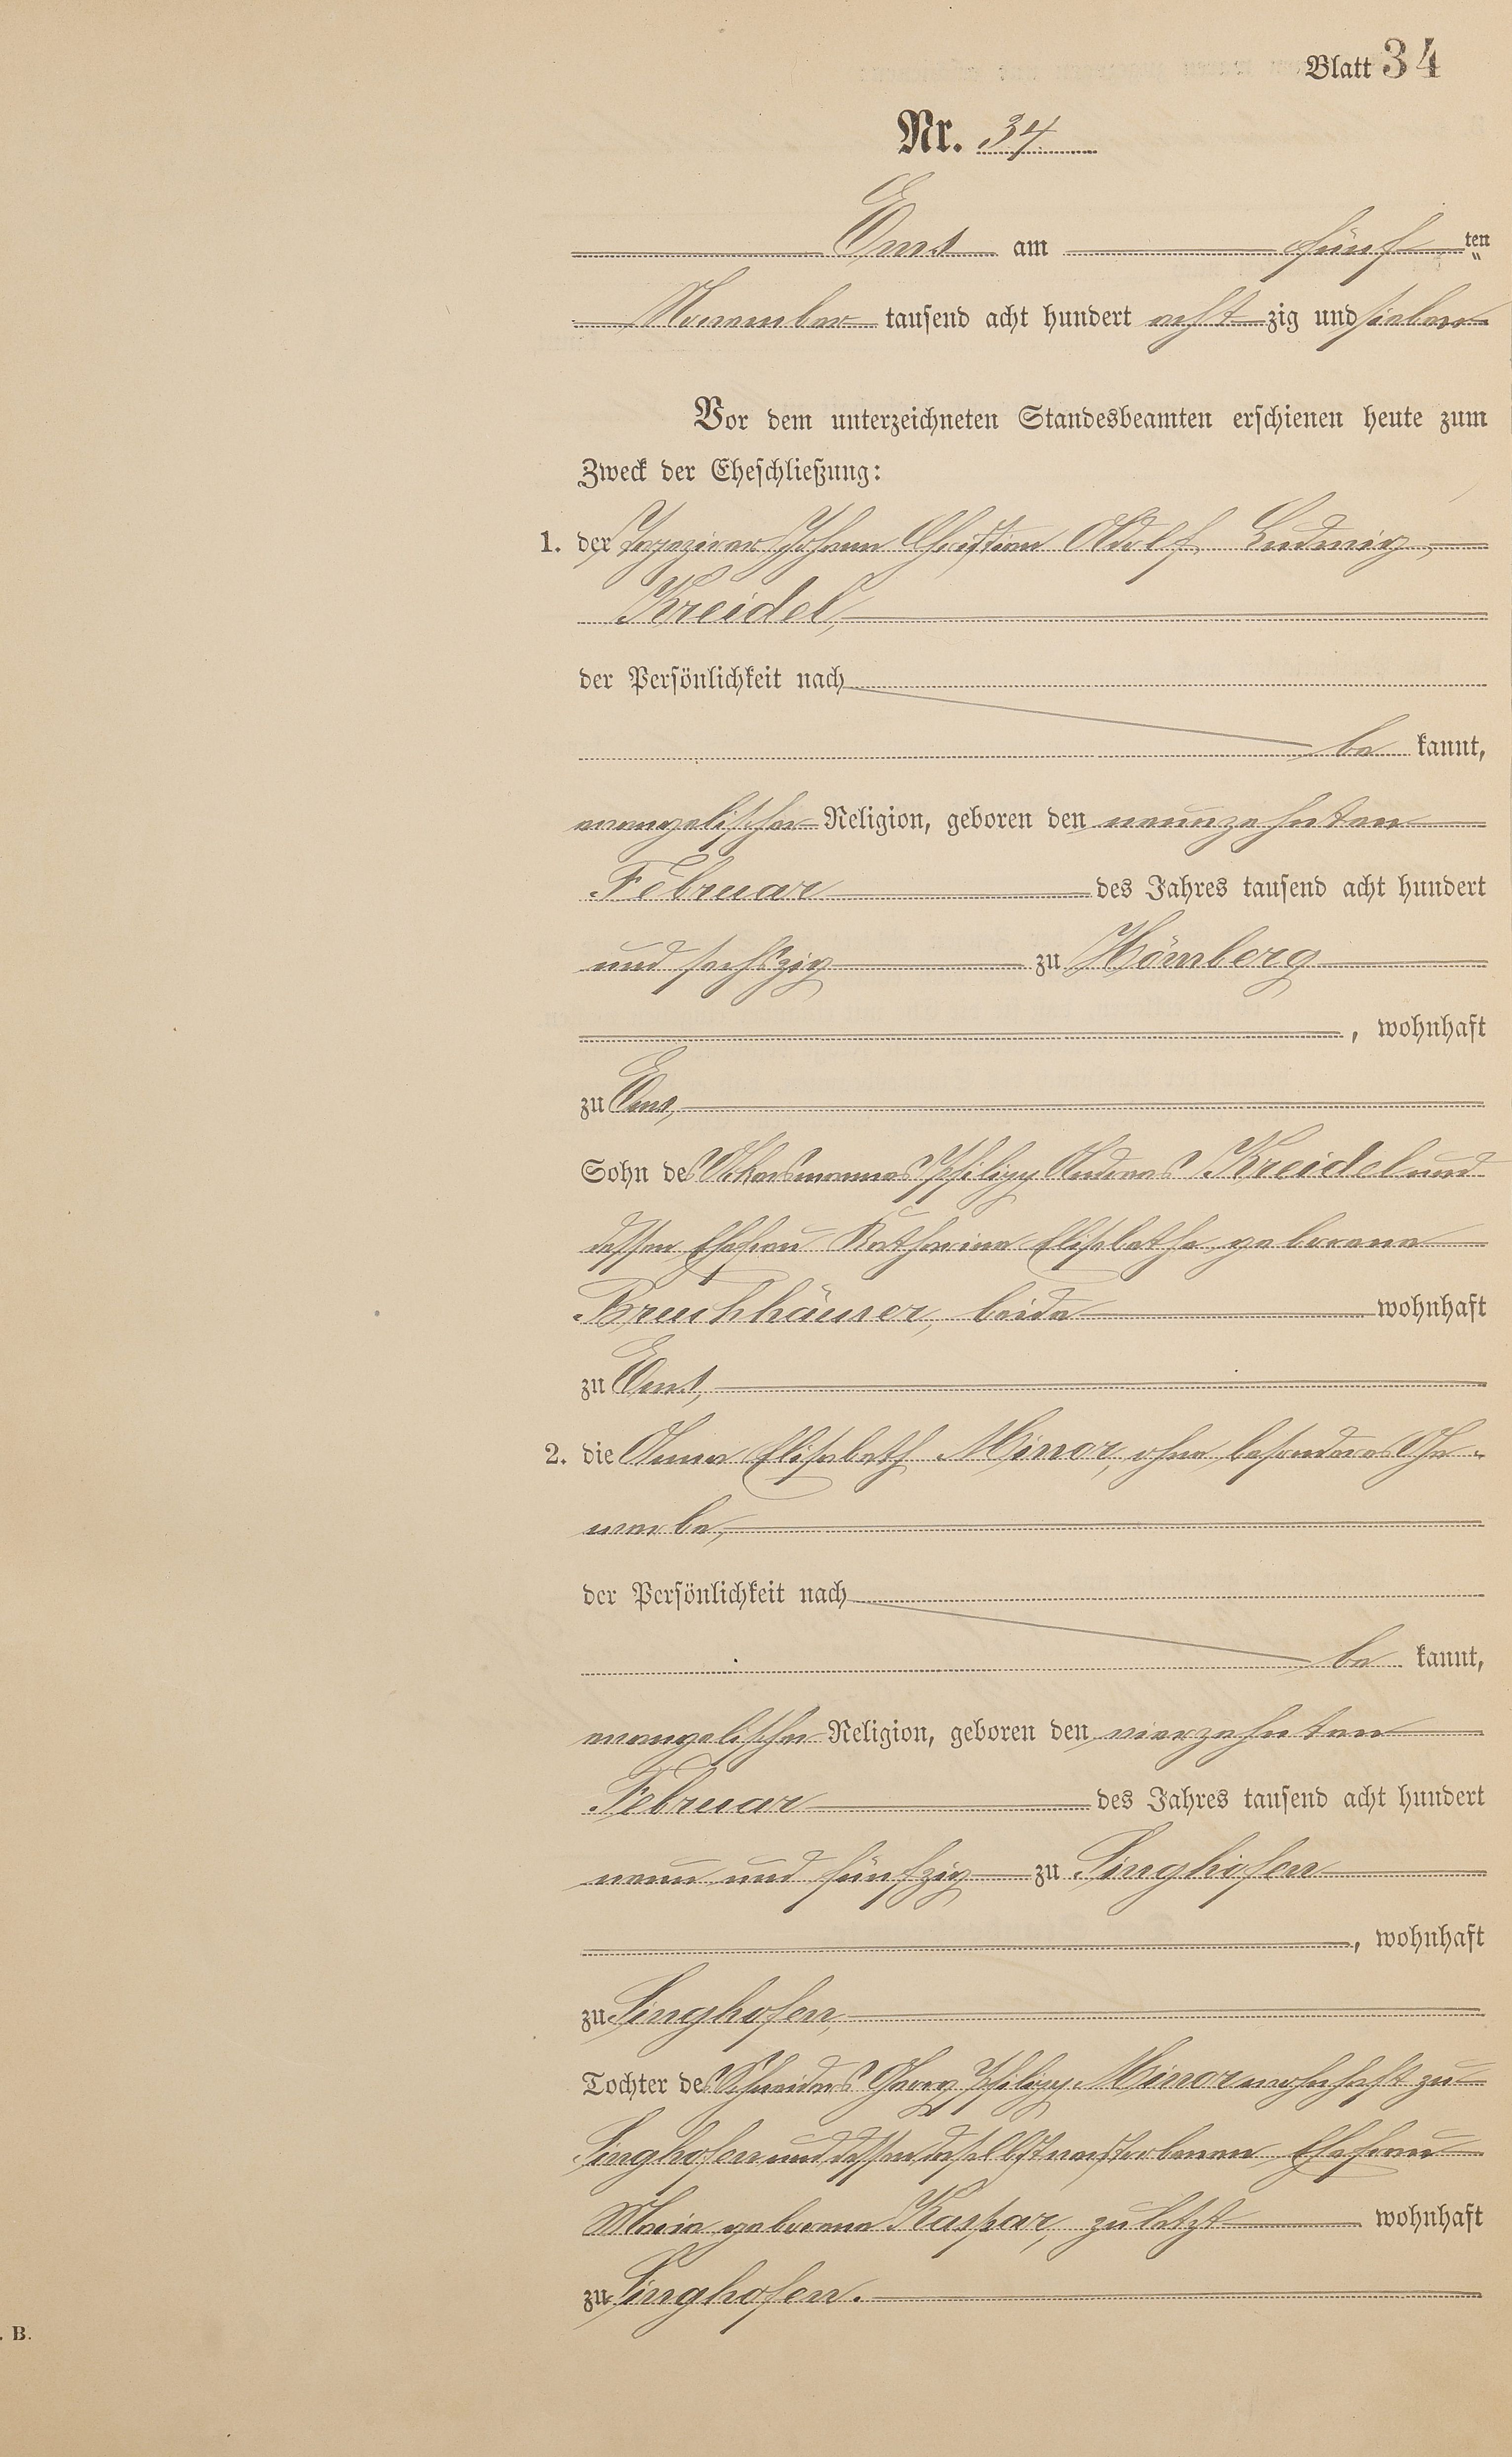 Blatt 34
Nr. 34
Ems am fünften
November tausend acht hundert achtzig und sieben
Vor dem unterzeichneten Standesbeamten erschienen heute zum
Zweck der Eheschließung:
1. der Tapezierer Johann Christian Adolf Ludwig
Kreidel,
der Persönlichkeit nach
be kannt,
evangelischer Religion, geboren den neunzehnten
Februar des Jahres tausend acht hundert
und sechszig zu Hömberg
, wohnhaft
zu Ems,
Sohn des Ackersmannes Philipp Andreas Kreidel und
dessen Ehefrau Katharine Elisabethe geborene
Bruchhäuser, beide wohnhaft
zu Ems,
2. die Anna Elisabeth Minor, ohne besonderes Ge-
werbe,
der Persönlichkeit nach
be kannt,
evangelischer Religion, geboren den vierzehnten
Februar des Jahres tausend acht hundert
neun und fünfzig zu Singhofen
, wohnhaft
zu Singhofen,
Tochter des Schneiders Georg Philipp Minor wohnhaft zu
Singhofen und dessen daselbst verstorbenen Ehefrau
Marie geborene Kaspar, zuletzt wohnhaft
zu Singhofen.
. B.